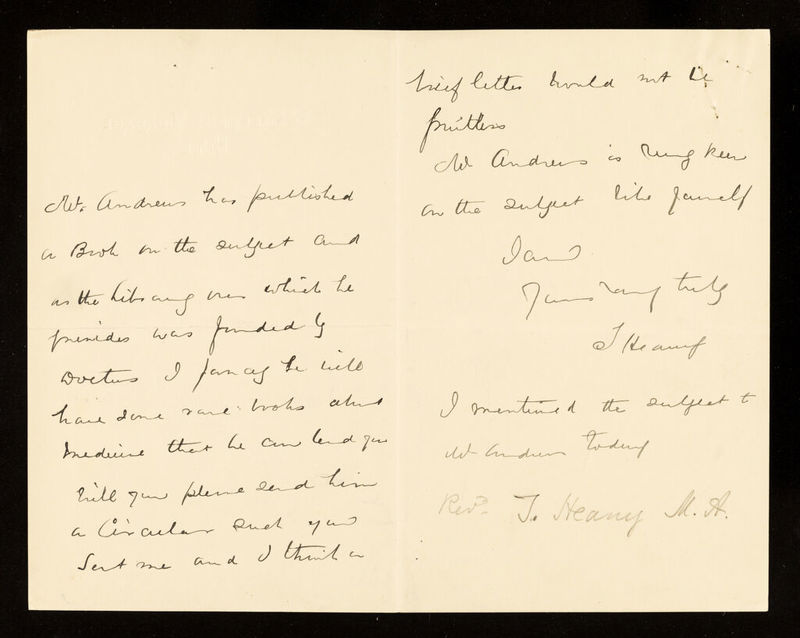 Mr. Andrews has published
a Book on the subject and
as the Library over which he
presides was founded by
Doctors I fancy he will
have some rare books about
medicine that he can lend you
Will you please send him
a Circular such you
Sent me and I think a
brief letter would not be
fruitless
Mr Andrews is very keen
on the subject like yourself
I am
Yours very truly
J Heany
I mentioned the subject to
Mr Andrews today
Revd. J. Heany M.A.